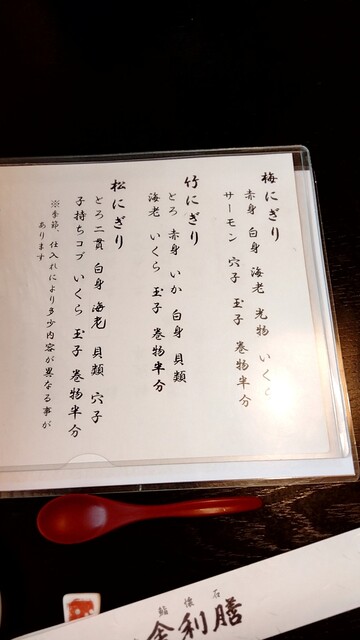 梅にぎり
赤身 白身 海老 光物 いくら
サーモン 穴子 玉子 巻物半分
竹にぎり
とろ 赤身 いか 白身 貝類
海老 いくら 玉子 巻物半分
松にぎり
とろ二貫 白身 海老 貝類 穴子
子持ちコブ いくら 玉子 巻物半分
※季節、仕入れにより多少内容が異なる事が
あります
鮨 懐石
金利膳